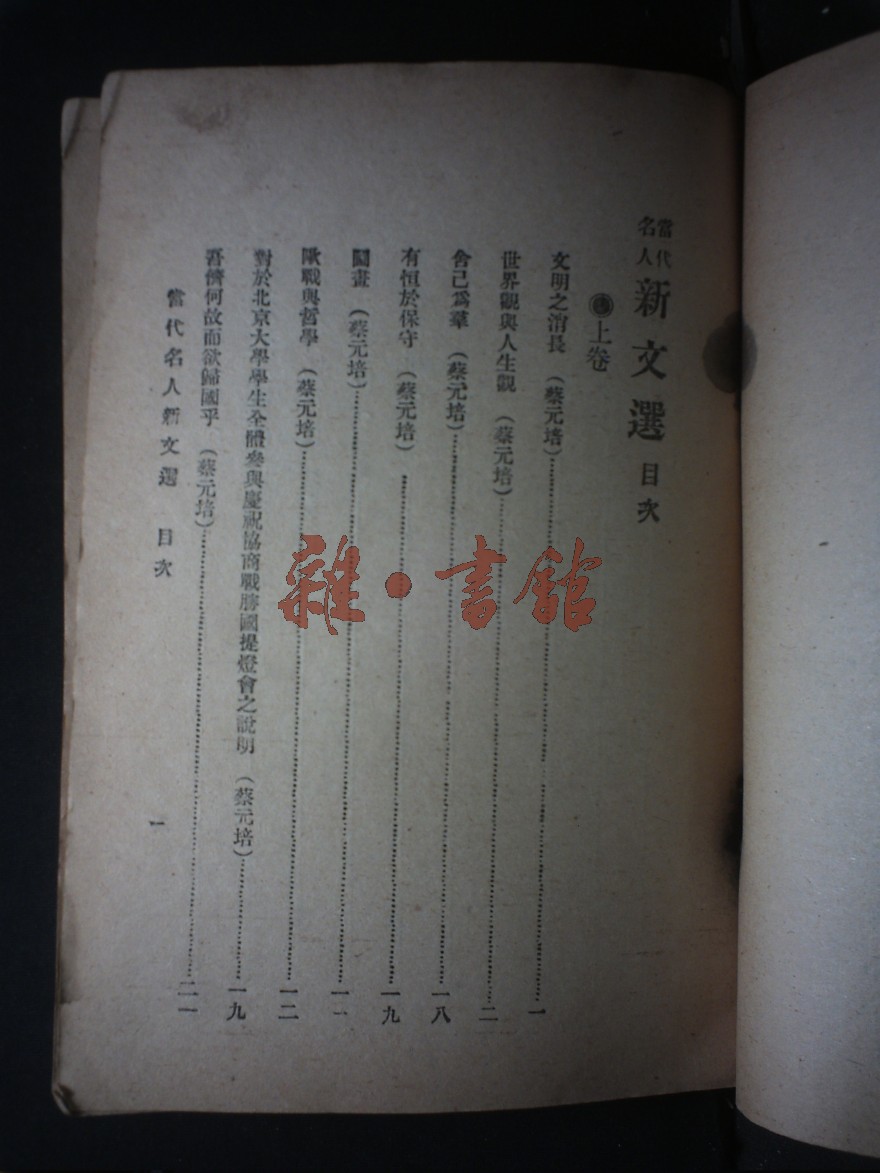 當代名人新文選 目次
上卷
文明之消長 （蔡元培）………一
世界觀與人生觀 （蔡元培）………二
舍己爲羣 （蔡元培）………一八
有恒於保守 （蔡元培）………一九
圖畫 （蔡元培）………一一
歐戰與哲學 （蔡元培）………一二
對於北京大學學生全體參與慶祝協商戰勝國提燈會之說明 （蔡元培）………一九
吾儕何故而欲歸國乎 （蔡元培）………二一
當代名人新文選 目次 一
雜·書館